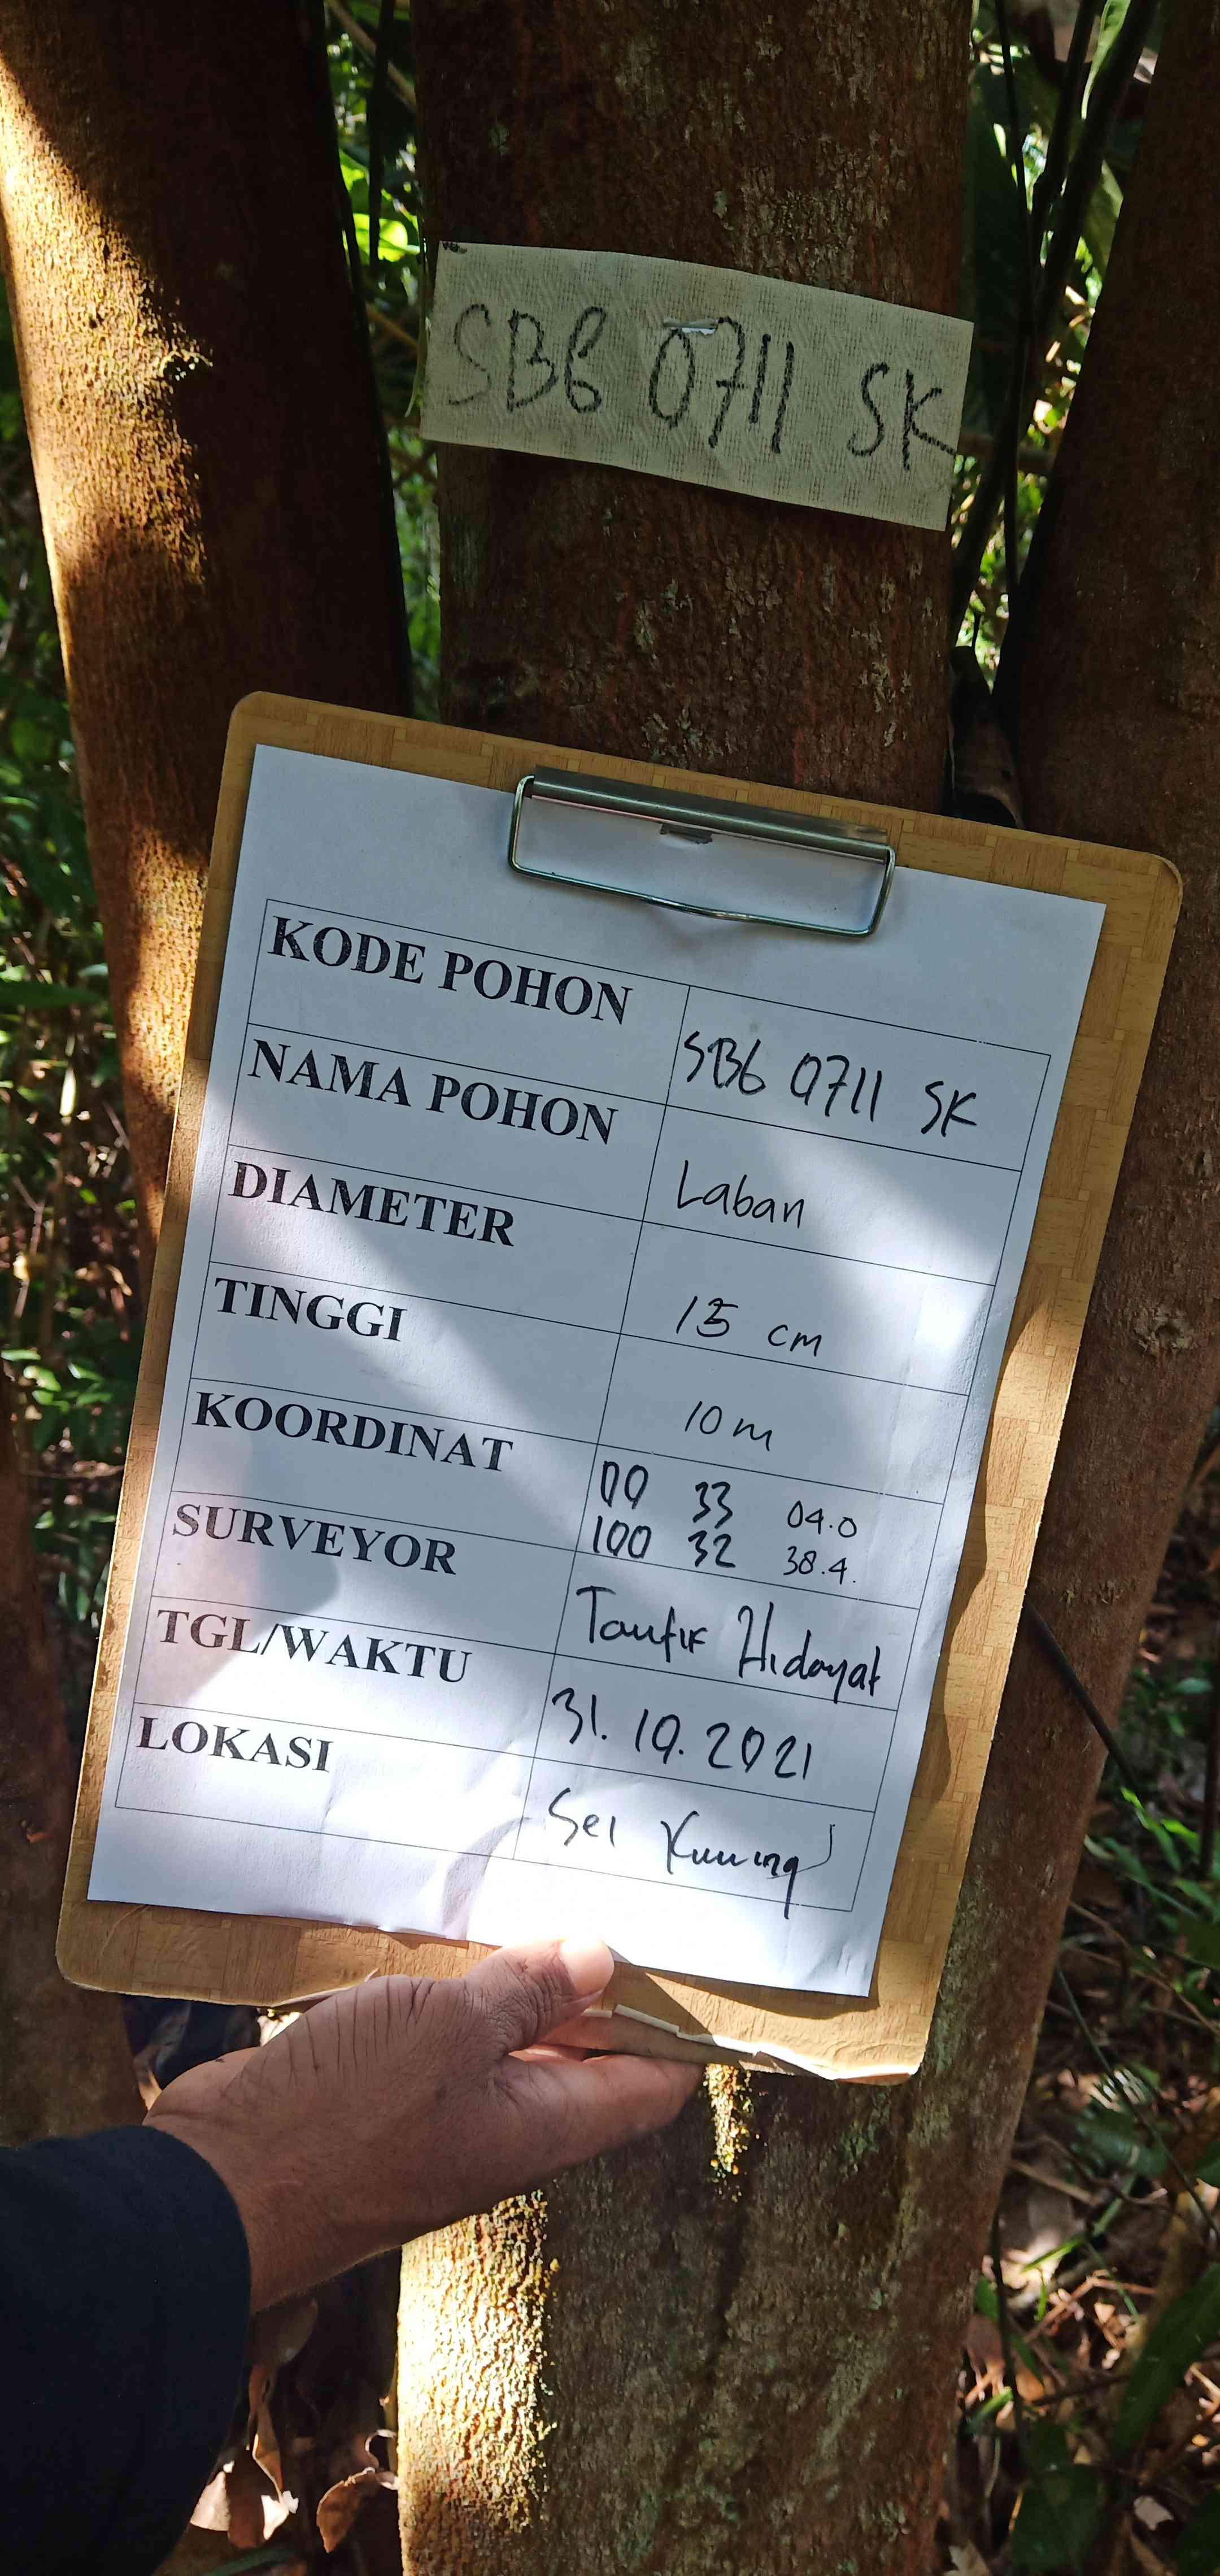 SB6 0711 SK
KODE POHON SB6 0711 SK
NAMA POHON Laban
DIAMETER 15 cm
TINGGI 10 m
KOORDINAT 00 33 04.0
100 32 38.4.
SURVEYOR Taufik Hidayat
TGL/WAKTU 31.10.2021
LOKASI Sei Kuning